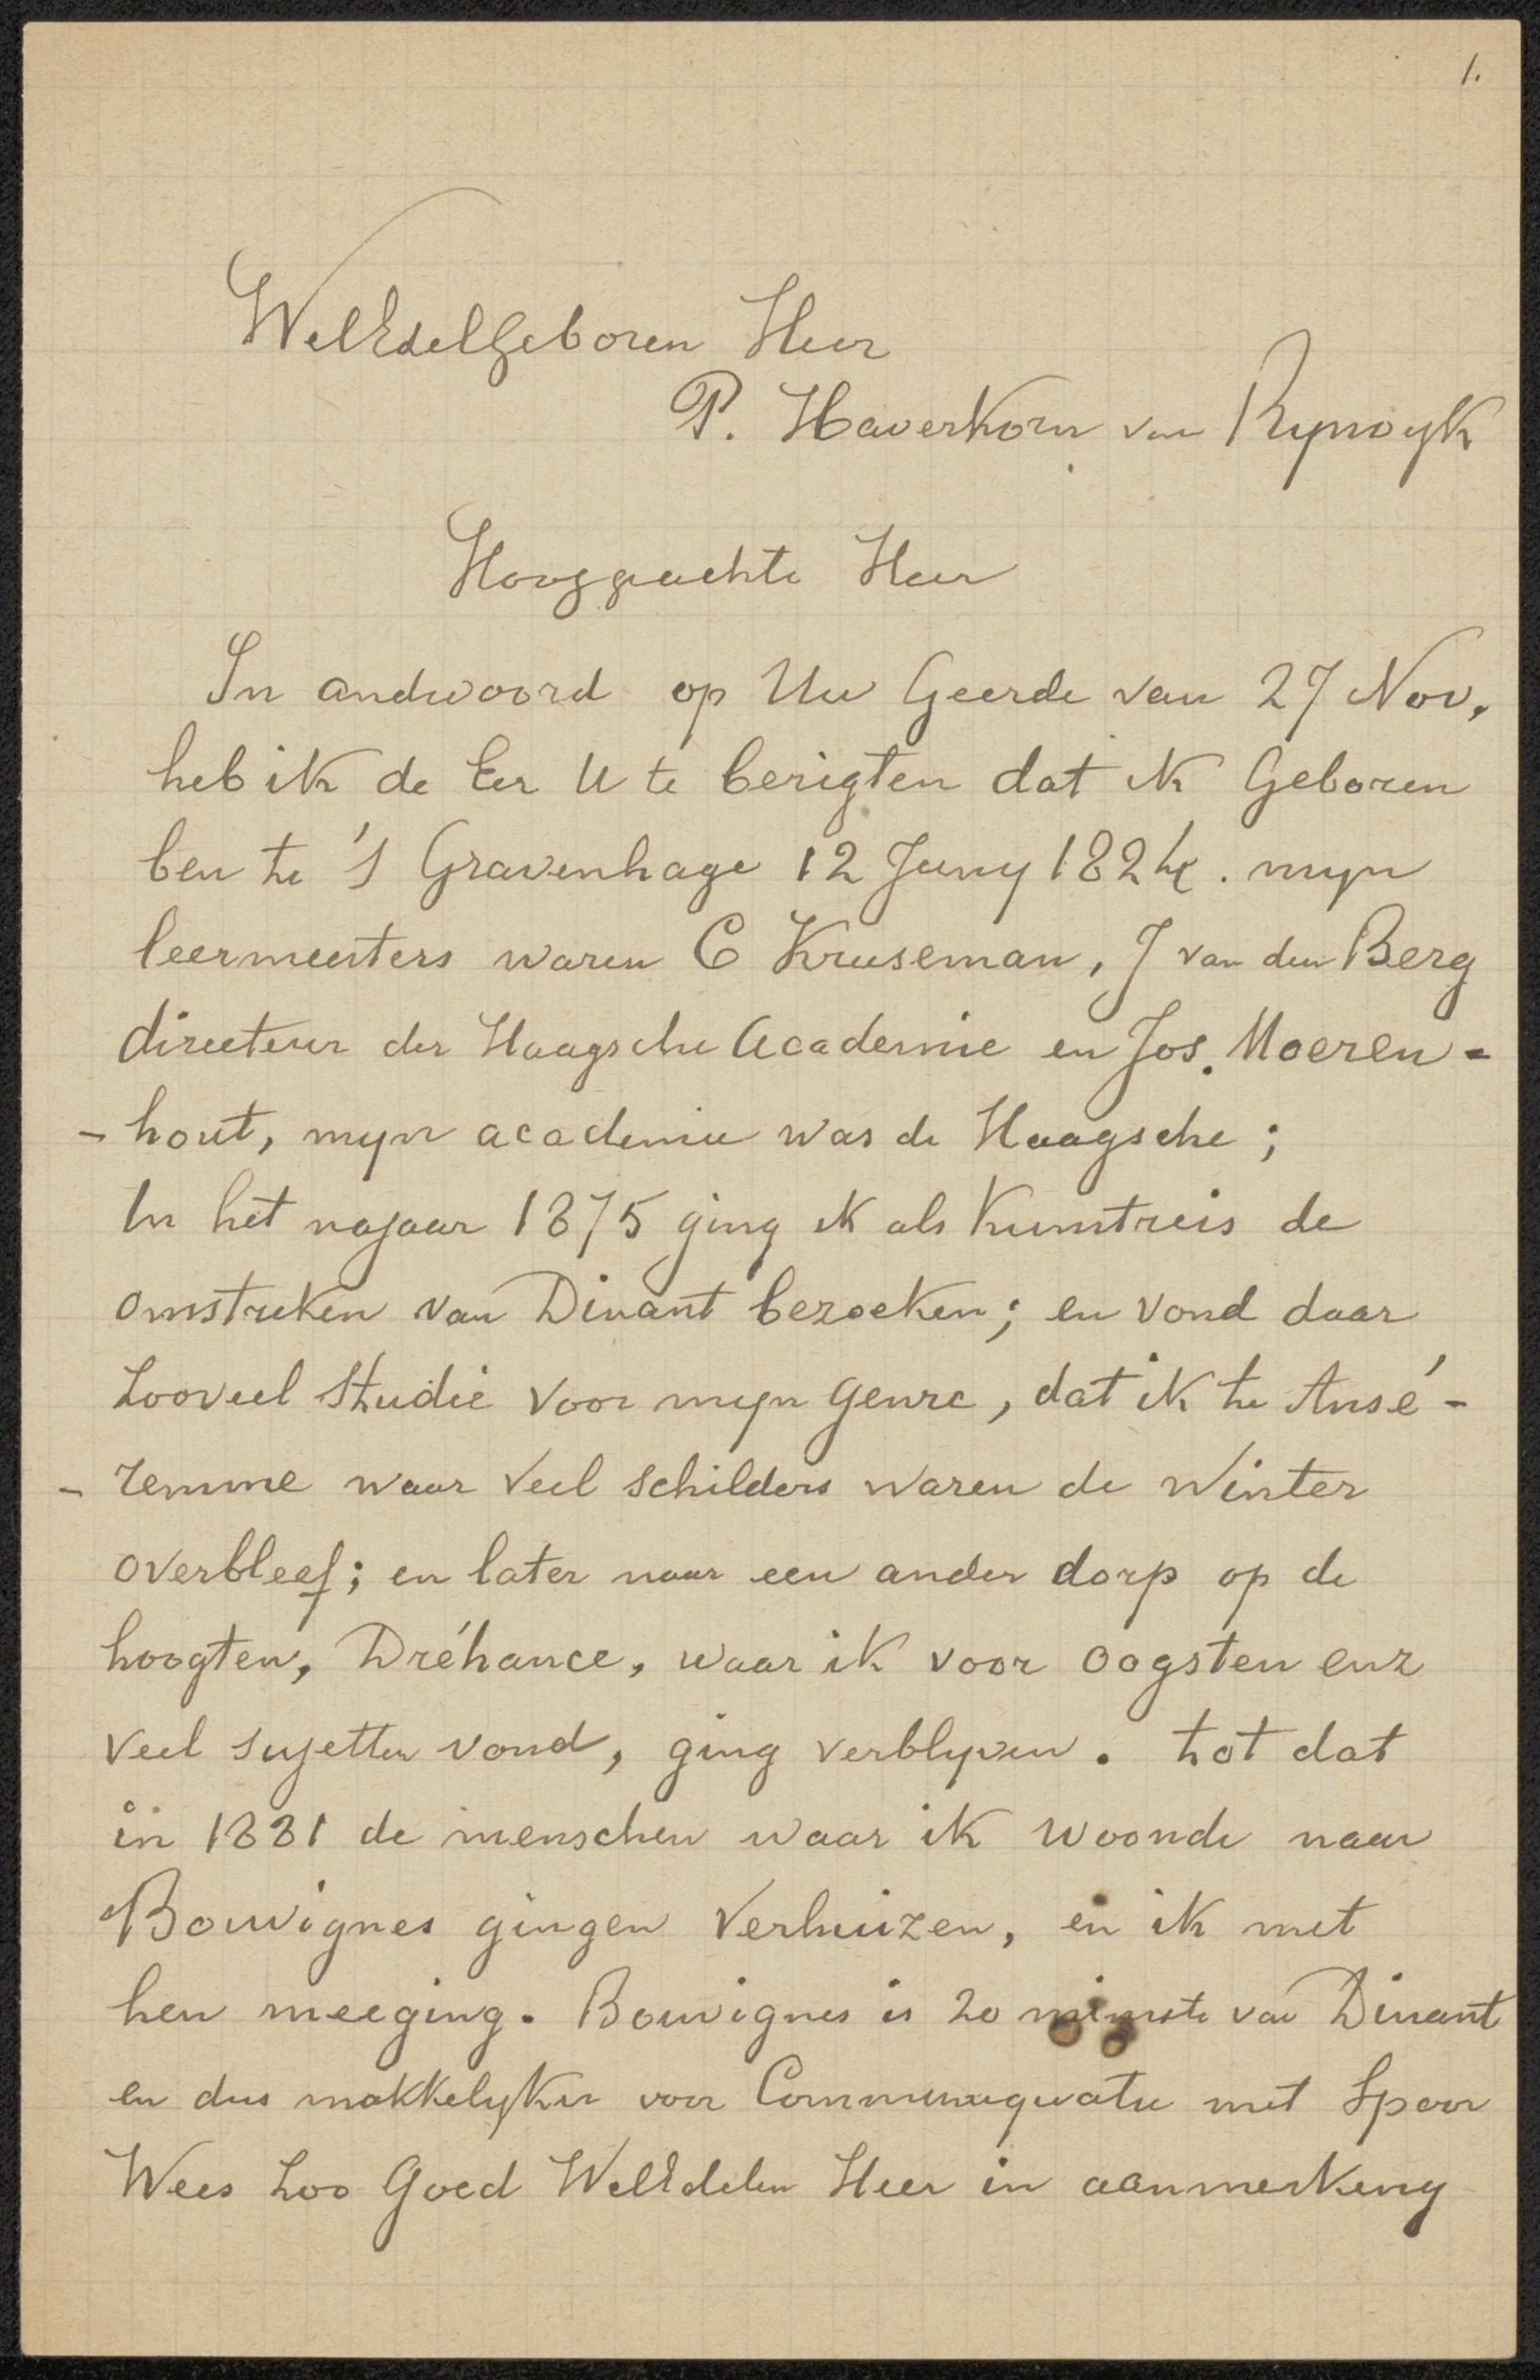 1.
WelEdelGeboren Heer
P. Haverkorn van Rijswijk
Hooggeachte Heer
In andwoord op Uw Geerde van 27 Nov.
heb ik de Eer U te berigten dat ik Geboren
ben te 's Gravenhage 12 Juny 1824. myn
leermeesters waren C Kruseman, J van den Berg
directeur der Haagsche Academie en Jos. Moeren-
- hout, myn academie was de Haagsche ;
In het najaar 1875 ging ik als Kunstreis de
omstreken van Dinant bezoeken; en vond daar
zooveel studie voor myn genre, dat ik te Ansé-
- remme waar veel schilders waren de winter
overbleef; en later naar een ander dorp op de
hoogten, Dréhance, waar ik voor oogsten enz
veel sujetten vond, ging verblyven. tot dat
in 1881 de menschen waar ik woonde naar
Bouvignes gingen verhuizen, en ik met
hen meeging. Bouvignes is 20 minute van Dinant
en dus makkelyker voor Communiquatie met Spoor
Wees zoo Goed WelEdelen Heer in aanmerking